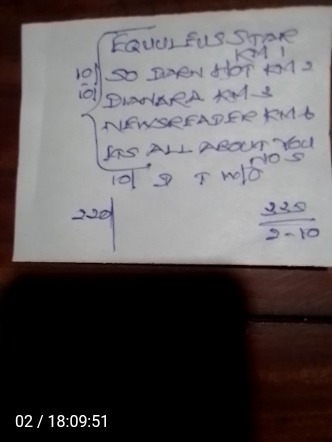 EQUULEUS STAR
KM 1
10/ SO DARN HOT KM 2
10/ DIANARA KM 3
NEWSREADER KM 6
ITS ALL ABOUT YOU
NO 5
10/ D T
220/
225
2-10
02 / 18:09:51